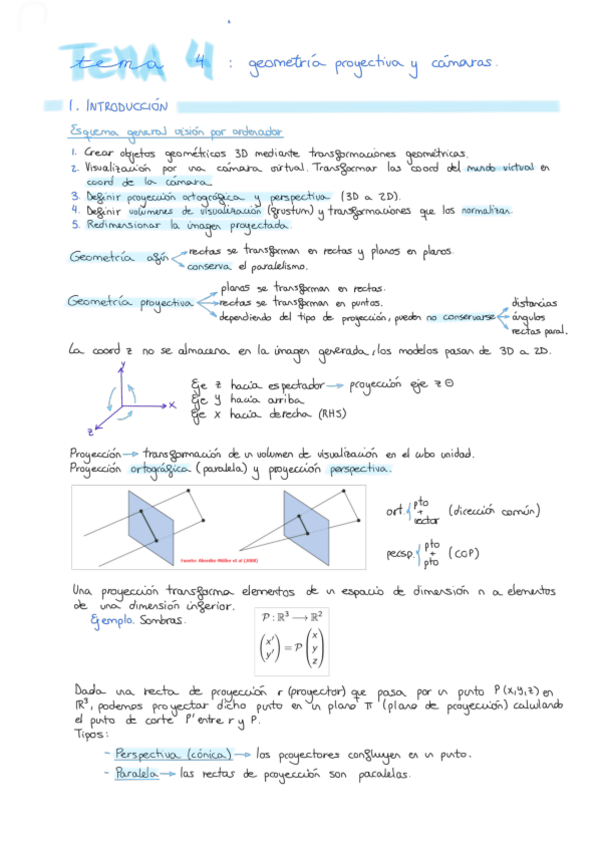 tema 4 : geometría proyectiva y cámaras.
1. INTRODUCCIÓN
Esquema general visión por ordenador
1. Crear objetos geométricos 3D mediante transformaciones geométricas.
2. Visualización por una cámara virtual. Transformar las coord del mundo virtual en
coord de la cámara
3. Definir proyección ortográfica y perspectiva (3D a 2D).
4. Definir volúmenes de visualización (frustum) y transformaciones que los normalizan.
5. Redimensionar la imagen proyectada.
Geometría afín
rectas se transforman en rectas y planos en planos.
conserva el paralelismo.
Geometría proyectiva
planos se transforman en rectas.
rectas se transforman en puntos.
dependiendo del tipo de proyección, pueden no conservarse
distancias
ángulos
rectas paral.
La coord z no se almacena en la imagen generada, los modelos pasan de 3D a 2D.
y
x
z
Eje z hacia espectador → proyección eje z ⊖
Eje y hacia arriba
Eje x hacia derecha (RHS)
Proyección → transformación de un volumen de visualización en el cubo unidad.
Proyección ortográfica (paralela) y proyección perspectiva.
ort. { pto + vector (dirección común)
persp. { pto + pto (COP)
Fuente: Akenine-Möller et al (2008)
Una proyección transforma elementos de un espacio de dimensión n a elementos
de una dimensión inferior.
Ejemplo. Sombras.
P : ℝ³ → ℝ²
(x' y') = P (x y z)
Dada una recta de proyección r (proyector) que pasa por un punto P(x,y,z) en
ℝ³, podemos proyectar dicho punto en un plano π (plano de proyección) calculando
el punto de corte P' entre r y P.
Tipos:
- Perspectiva (cónica) → los proyectores confluyen en un punto.
- Paralela → las rectas de proyección son paralelas.